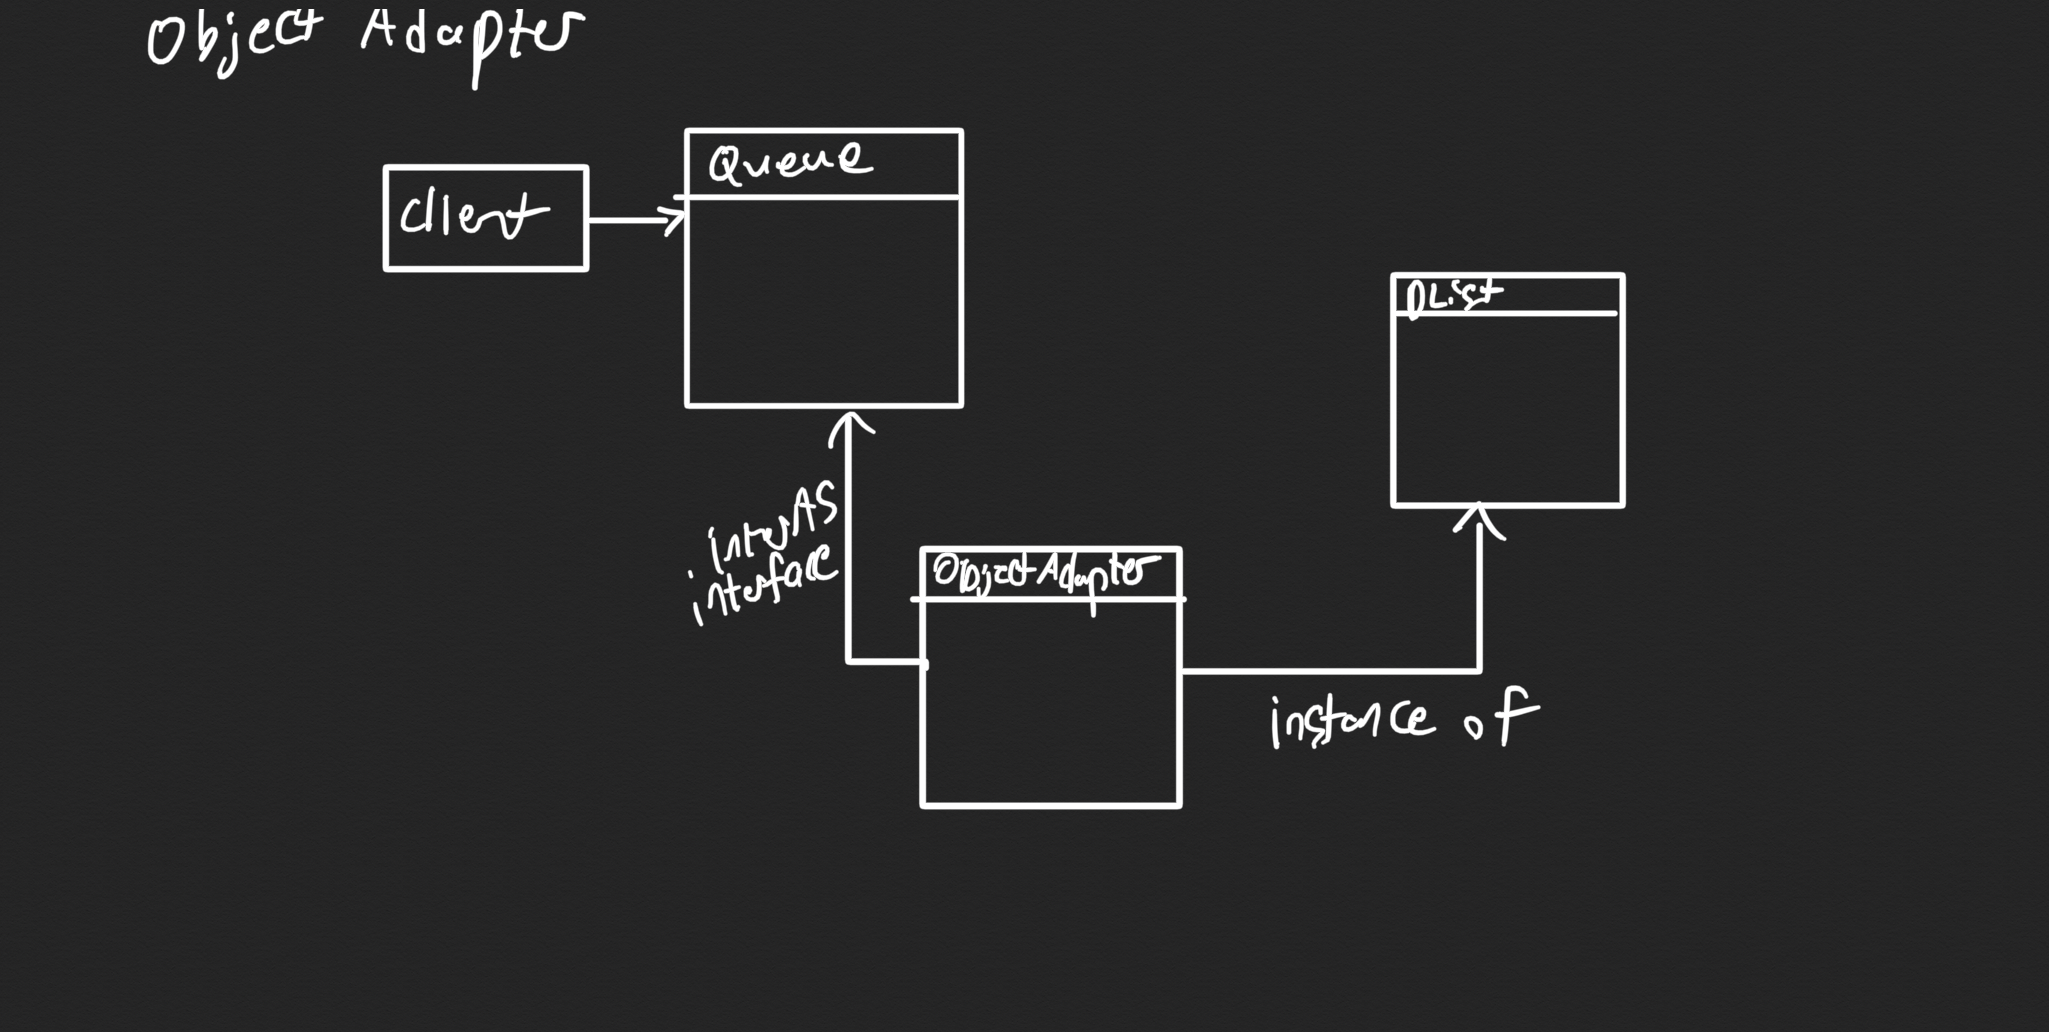 Object Adapter
Queue
Client
DList
interAS
interface
ObjectAdapter
instance of